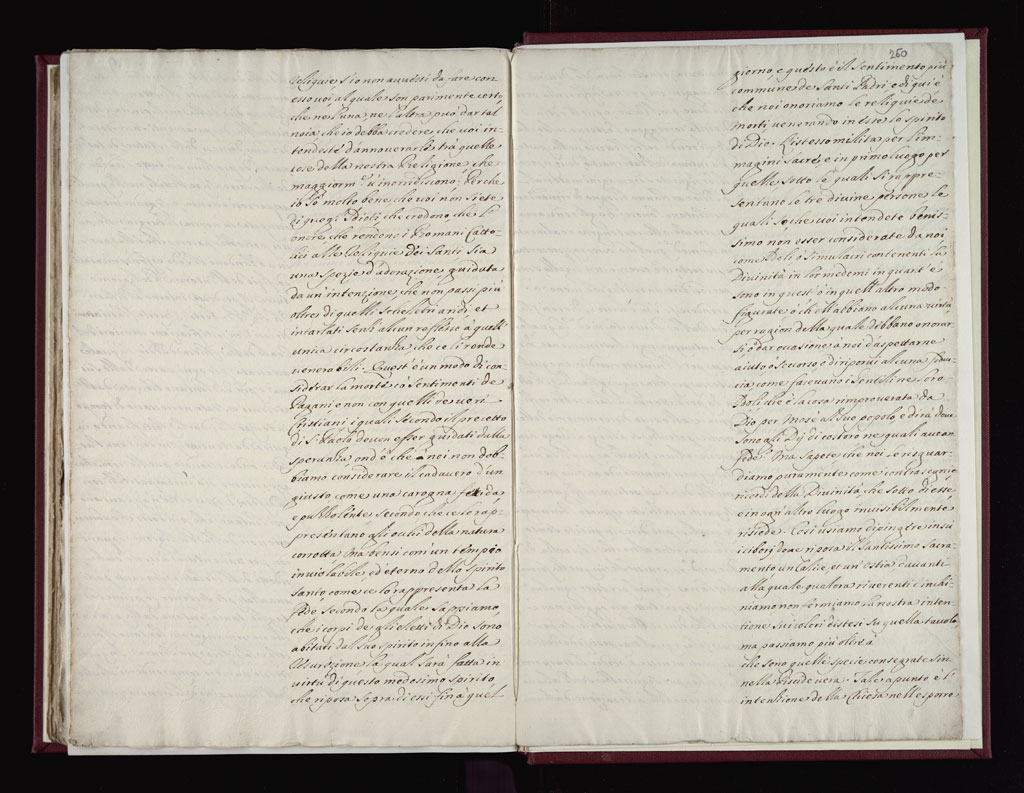 Reliquie; s'io non avvedessi da fare con
esso voi, al quale son parimente certo,
che ne l'una, ne l'altra può dar tal
noia che io debba credere che voi in-
tendeste d'annoverarle tra quelle
cose della nostra Religione che
maggiorm.te v'inorridiscono. Perche
io so molto bene che voi non siete
di quegl'Idioti, che credono che l'
onore, che rendono i Romani Catto-
lici alle Reliquie dei Santi sia
una spezie d'adorazione, guidata
da un'intenzione, che non passi più
oltre di quelli scheletri aridi, et
incartati senz'alcun reflesso à quell'
unica circostanza, che ce li rende
venerabili. Quest'è un modo di con-
siderar la morte co' sentimenti de
Pagani e non con quelli de veri
Cristiani i quali secondo il precetto
di S. Paolo deven esser guidati dalla
speranza, ond'è che à noi non dob-
biamo considerare il cadavero d'un
giusto come una carogna fetida,
e puzzolente secondo che ce lo rap-
presentano gli occhi della natura
corrotta, ma bensì com'un tempio
inviolabile, ed eterno dello spirito
santo come ce lo rappresenta la
fede secondo la quale sappiamo,
che i corpi de gli eletti di Dio sono
abitati dal suo spirito infino alla
Resurrezione la qual sarà fatta in
virtù di questo medesimo spirito,
che riposa sopra di essi fin à quel
260
giorno, e questo è il sentimento più
commune de Santi Padri e di quì è
che noi onoriamo le reliquie de
morti venerando in esse lo spirito
di Dio. L'istesso milita per l'im-
magini sacre, e in primo luogo per
quelle sotto le quali si rappre-
sentano le tre divine persone le
quali sò che voi intendete benis-
simo non esser considerate da noi
come Idoli ò simulacri contenenti la
Divinità in lor medemi in quant'è
sono in quest'ò in quell'altro modo
figurate ò ch'ell'abbiano alcuna virtù,
per ragion della quale debbano onorar-
si ò dar occasione à noi d'aspettarne
aiuto ò soccorso ò di riporvi alcuna fidu-
cia come facevano i Gentili ne loro
Idoli, che è la cosa rimproverata da
Dio per Mosè al suo popolo, e dirà dove
sono gli Dij di costoro ne quali avean
fede. Ma sapete che noi le risguar-
diamo puramente come contrasegni e
ricordi della Divinità, che sotto di esse,
e in ogni altro luogo invisibilmente
risiede. Così usiamo dipingere in sù
i ciborj dove riposa il Santissimo Sacra-
mento un Calice, et un'ostia è avanti
alla quale qualora riverenti c'inchi-
niamo non fermiamo la nostra inten-
zione su i colori distesi su quella tavola
ma passiamo più oltre à
che sono quelli specie consegrate sin
nella Piside vera. Tale apunto è l'
intenzione della Chiesa nell'esporre